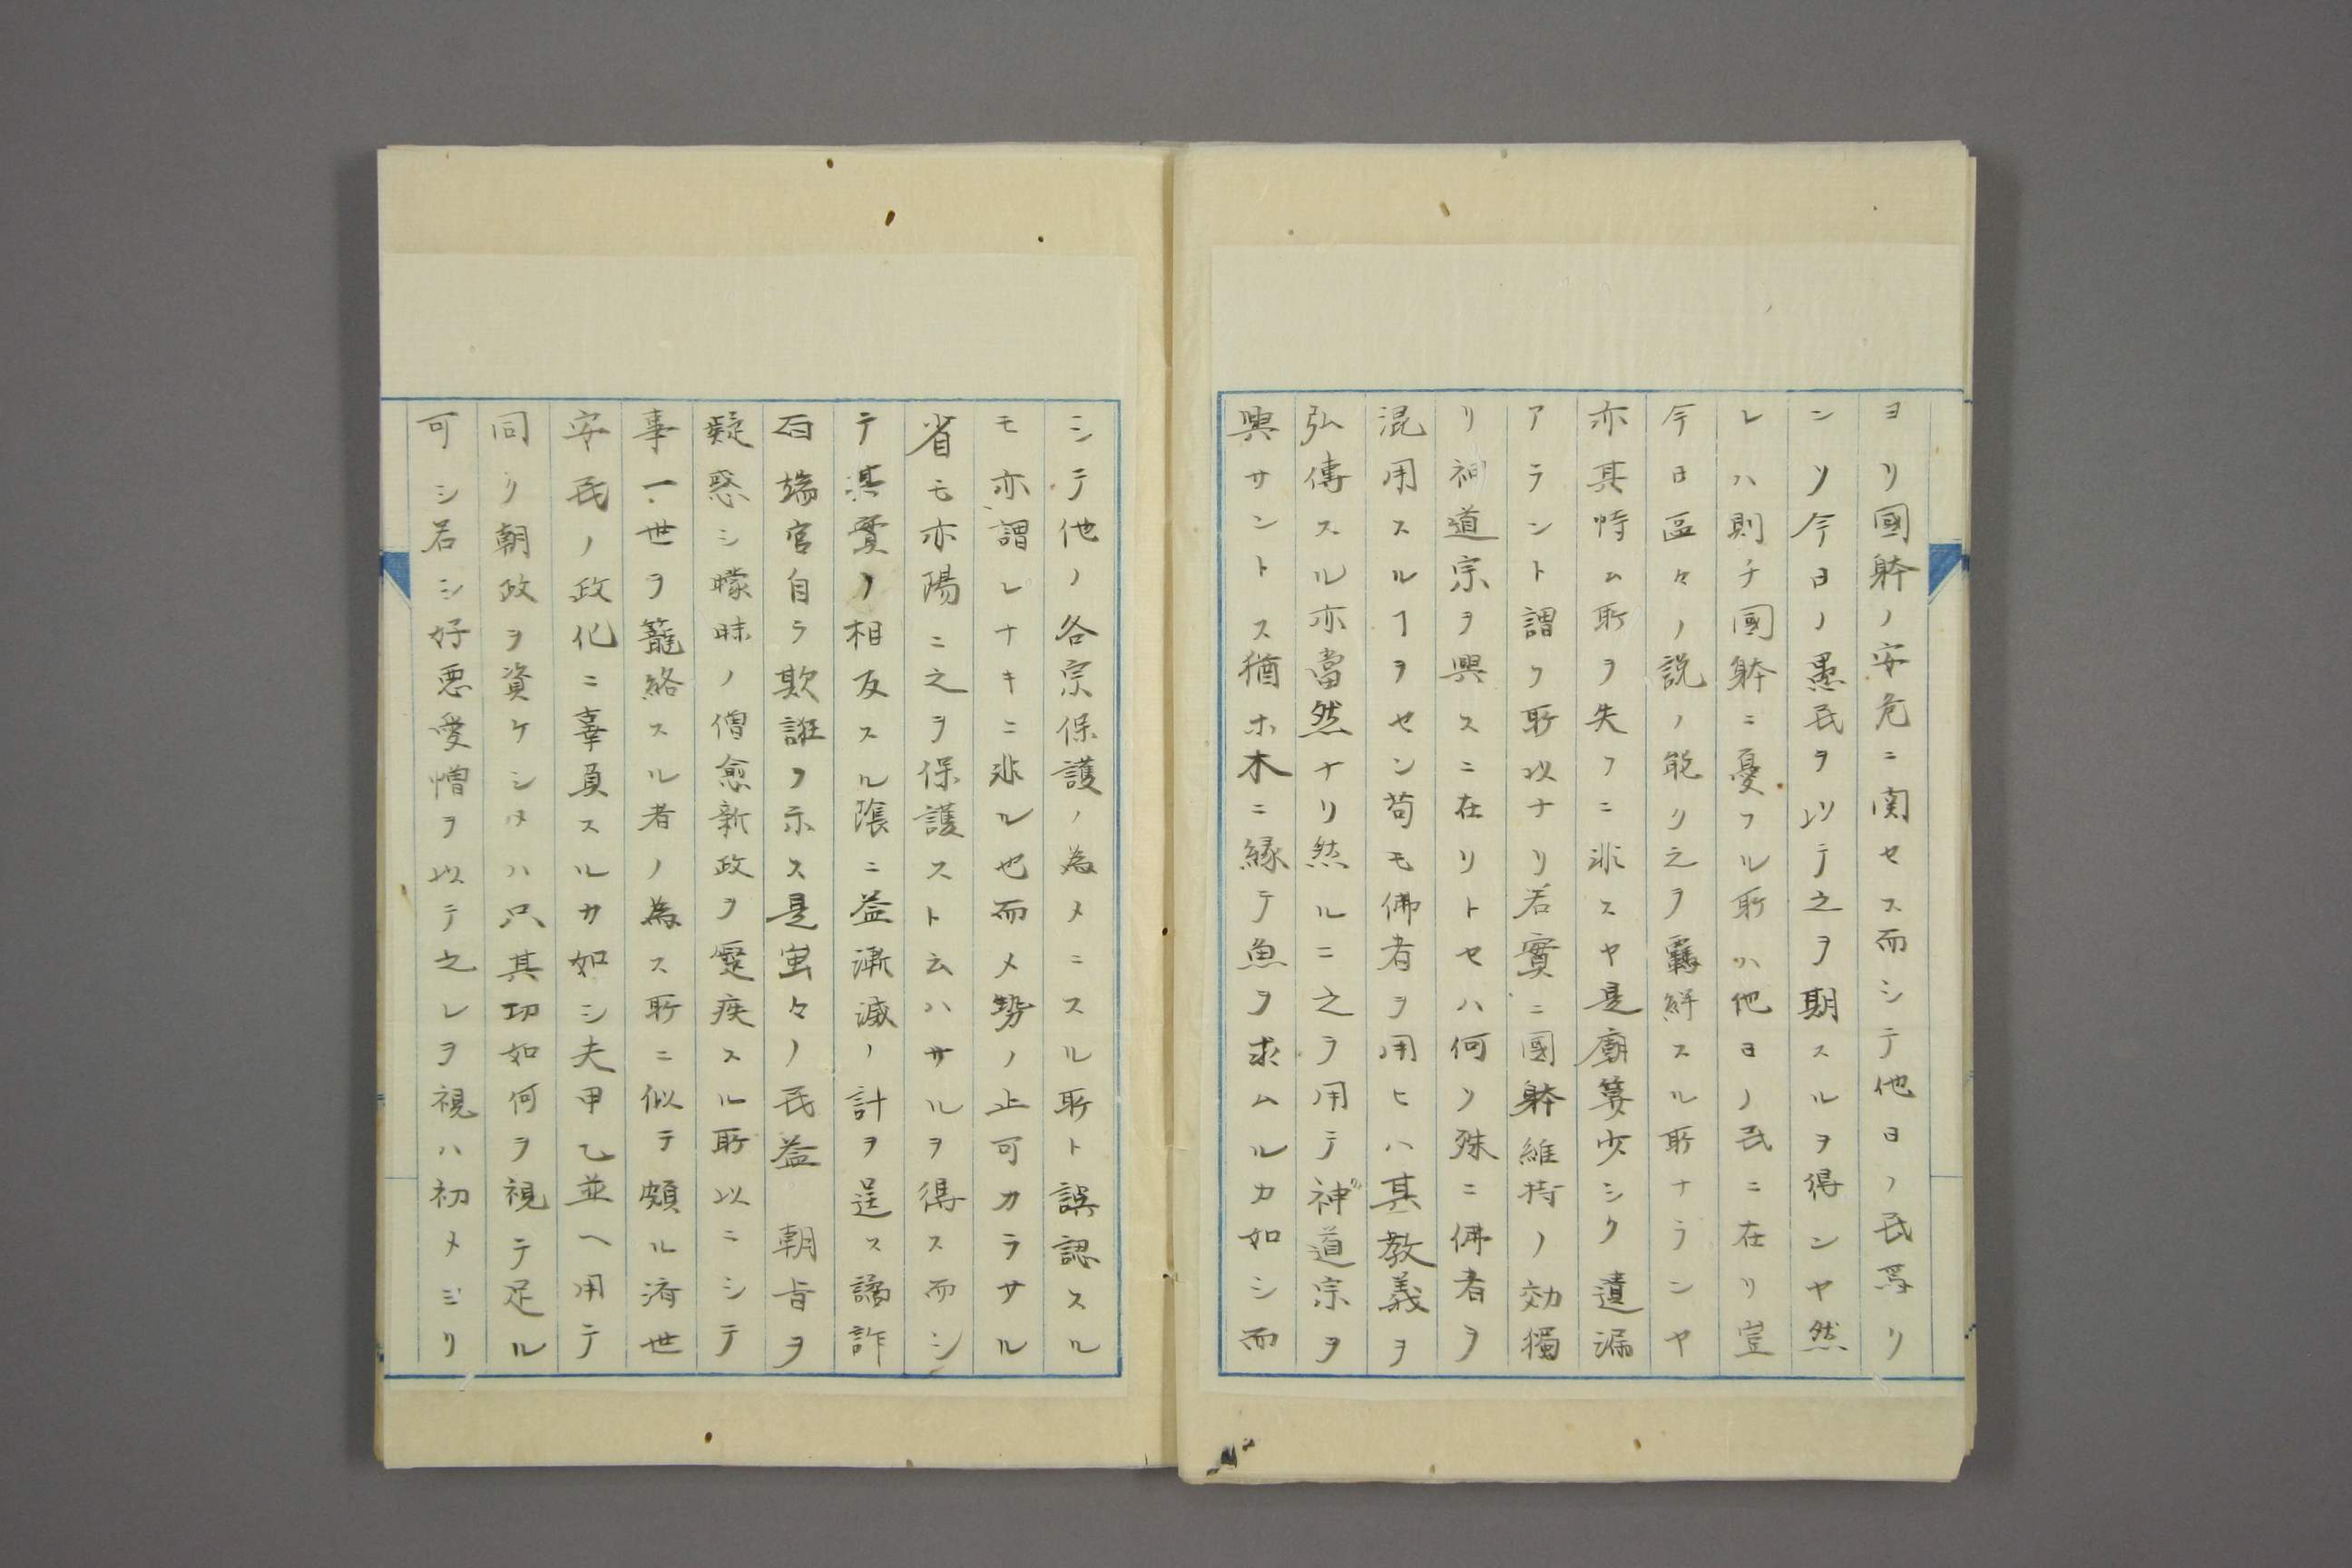 ヨリ國躰ノ安危ニ関セス而シテ他日ノ民焉リ
ンソ今日ノ愚民ヲ以テ之ヲ期スルヲ得ンヤ然
レハ則チ國躰ニ憂フル所ハ他日ノ民ニ在リ豈
今日區々ノ説ノ能ク之ヲ羈絆スル所ナランヤ
亦其恃ム所ヲ失フニ非スヤ是廟筭少シク遺漏
アラント謂フ所以ナリ若實ニ國躰維持ノ効獨
リ神道宗ヲ興スニ在リトセハ何ソ殊ニ佛者ヲ
混用スルヿヲセン苟モ佛者ヲ用ヒハ其教義ヲ
弘傳スル亦當然ナリ然ルニ之ヲ用テ神道宗ヲ
興サントス猶ホ木ニ縁テ魚ヲ求ムルカ如シ而
シテ他ノ各宗保護ノ為メニスル所ト誤認スル
モ亦謂レナキニ非ル也而メ勢ノ止可カラサル
省モ亦陽ニ之ヲ保護スト云ハサルヲ得ス而シ
テ其實ノ相反スル隂ニ益漸滅ノ計ヲ逞ス譎詐
百端官自ラ欺誑ヲ示ス是蚩々ノ民益　朝旨ヲ
疑惑シ曚昧ノ僧愈新政ヲ疾スル所以ニシテ
事一世ヲ籠絡スル者ノ為ス所ニ似テ頗ル済世
安民ノ政化ニ辜負スルカ如シ夫甲乙並ヘ用テ
同ク朝政ヲ資ケシメハ只其功如何ヲ視テ足ル
可シ若シ好悪愛憎ヲ以テ之レヲ視ハ初メヨリ